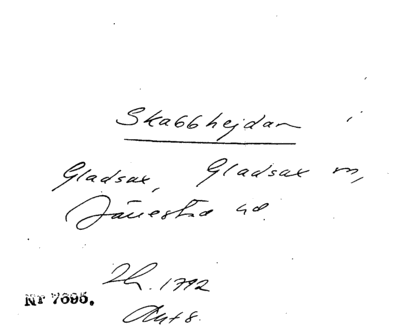 Skabbhejdan i
Gladsax, Gladsax sn,
Järrestad hd.
Lh. 1792
Akt 8.
Nr 7695.